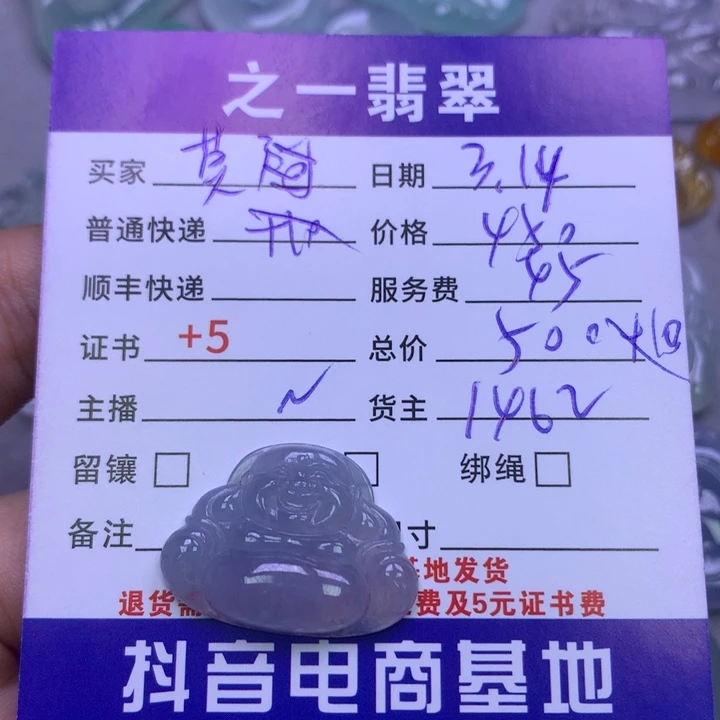 之一翡翠
买家 莫阿 日期 3.14
普通快递 价格 450
顺丰快递 服务费 45
证书 +5 总价 500+10
主播 货主 1462
留镶 绑绳
备注 寸
基地发货
退货需 费及5元证书费
抖音电商基地